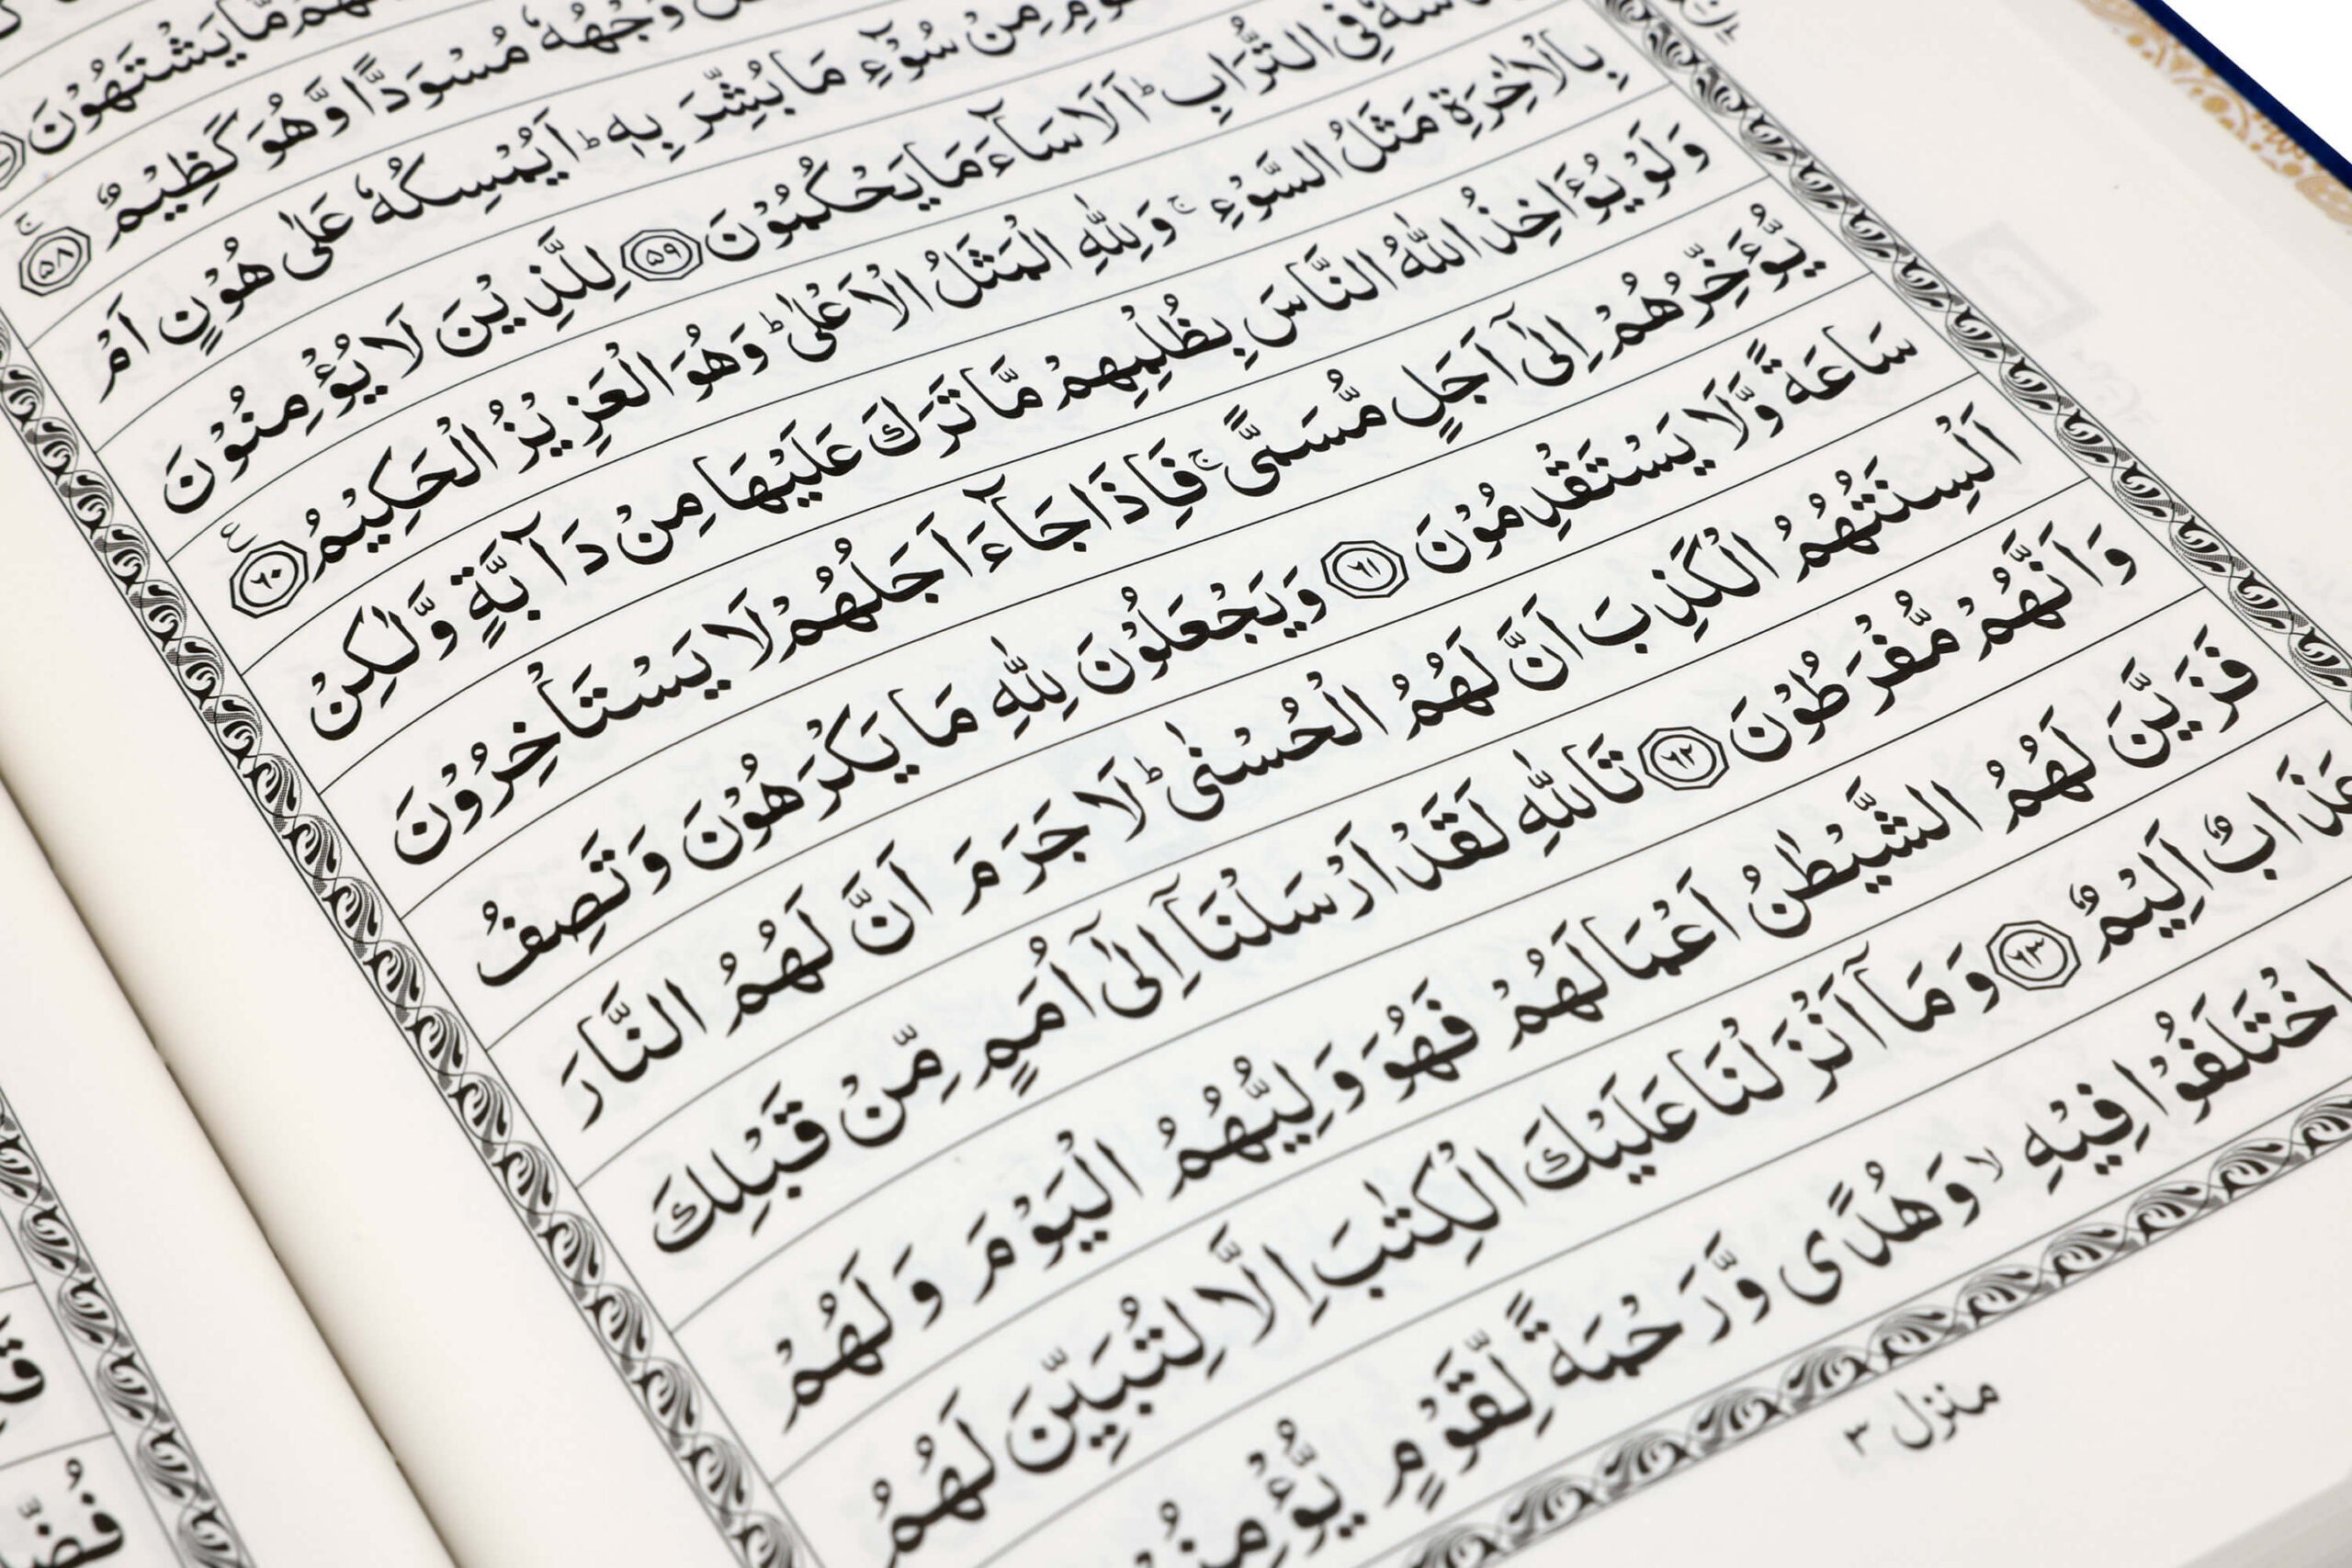 مَّا يَشْتَهُوْنَ
وَجْهُهٗ مُسْوَدًّا وَّهُوَ كَظِيْمٌ ۚ ﴿۵۸﴾
مِنْ سُوْٓءِ مَا بُشِّرَ بِهٖ ؕ اَيُمْسِكُهٗ عَلٰى هُوْنٍ اَمْ
فِى التُّرَابِ ؕ اَلَا سَآءَ مَا يَحْكُمُوْنَ ﴿۵۹﴾ لِلَّذِيْنَ لَا يُؤْمِنُوْنَ
بِالْاٰخِرَةِ مَثَلُ السَّوْءِ ۚ وَلِلّٰهِ الْمَثَلُ الْاَعْلٰى ؕ وَهُوَ الْعَزِيْزُ الْحَكِيْمُ ﴿۶۰﴾
وَلَوْ يُؤَاخِذُ اللّٰهُ النَّاسَ بِظُلْمِهِمْ مَّا تَرَكَ عَلَيْهَا مِنْ دَآبَّةٍ وَّلٰكِنْ
يُّؤَخِّرُهُمْ اِلٰٓى اَجَلٍ مُّسَمًّى ۚ فَاِذَا جَآءَ اَجَلُهُمْ لَا يَسْتَاْخِرُوْنَ
سَاعَةً وَّلَا يَسْتَقْدِمُوْنَ ﴿۶۱﴾ وَيَجْعَلُوْنَ لِلّٰهِ مَا يَكْرَهُوْنَ وَتَصِفُ
اَلْسِنَتُهُمُ الْكَذِبَ اَنَّ لَهُمُ الْحُسْنٰى ؕ لَا جَرَمَ اَنَّ لَهُمُ النَّارَ
وَاَنَّهُمْ مُّفْرَطُوْنَ ﴿۶۲﴾ تَاللّٰهِ لَقَدْ اَرْسَلْنَآ اِلٰٓى اُمَمٍ مِّنْ قَبْلِكَ
فَزَيَّنَ لَهُمُ الشَّيْطٰنُ اَعْمَالَهُمْ فَهُوَ وَلِيُّهُمُ الْيَوْمَ وَلَهُمْ
عَذَابٌ اَلِيْمٌ ﴿۶۳﴾ وَمَآ اَنْزَلْنَا عَلَيْكَ الْكِتٰبَ اِلَّا لِتُبَيِّنَ لَهُمُ
اخْتَلَفُوْا فِيْهِ ۙ وَهُدًى وَّرَحْمَةً لِّقَوْمٍ
منزل ۳